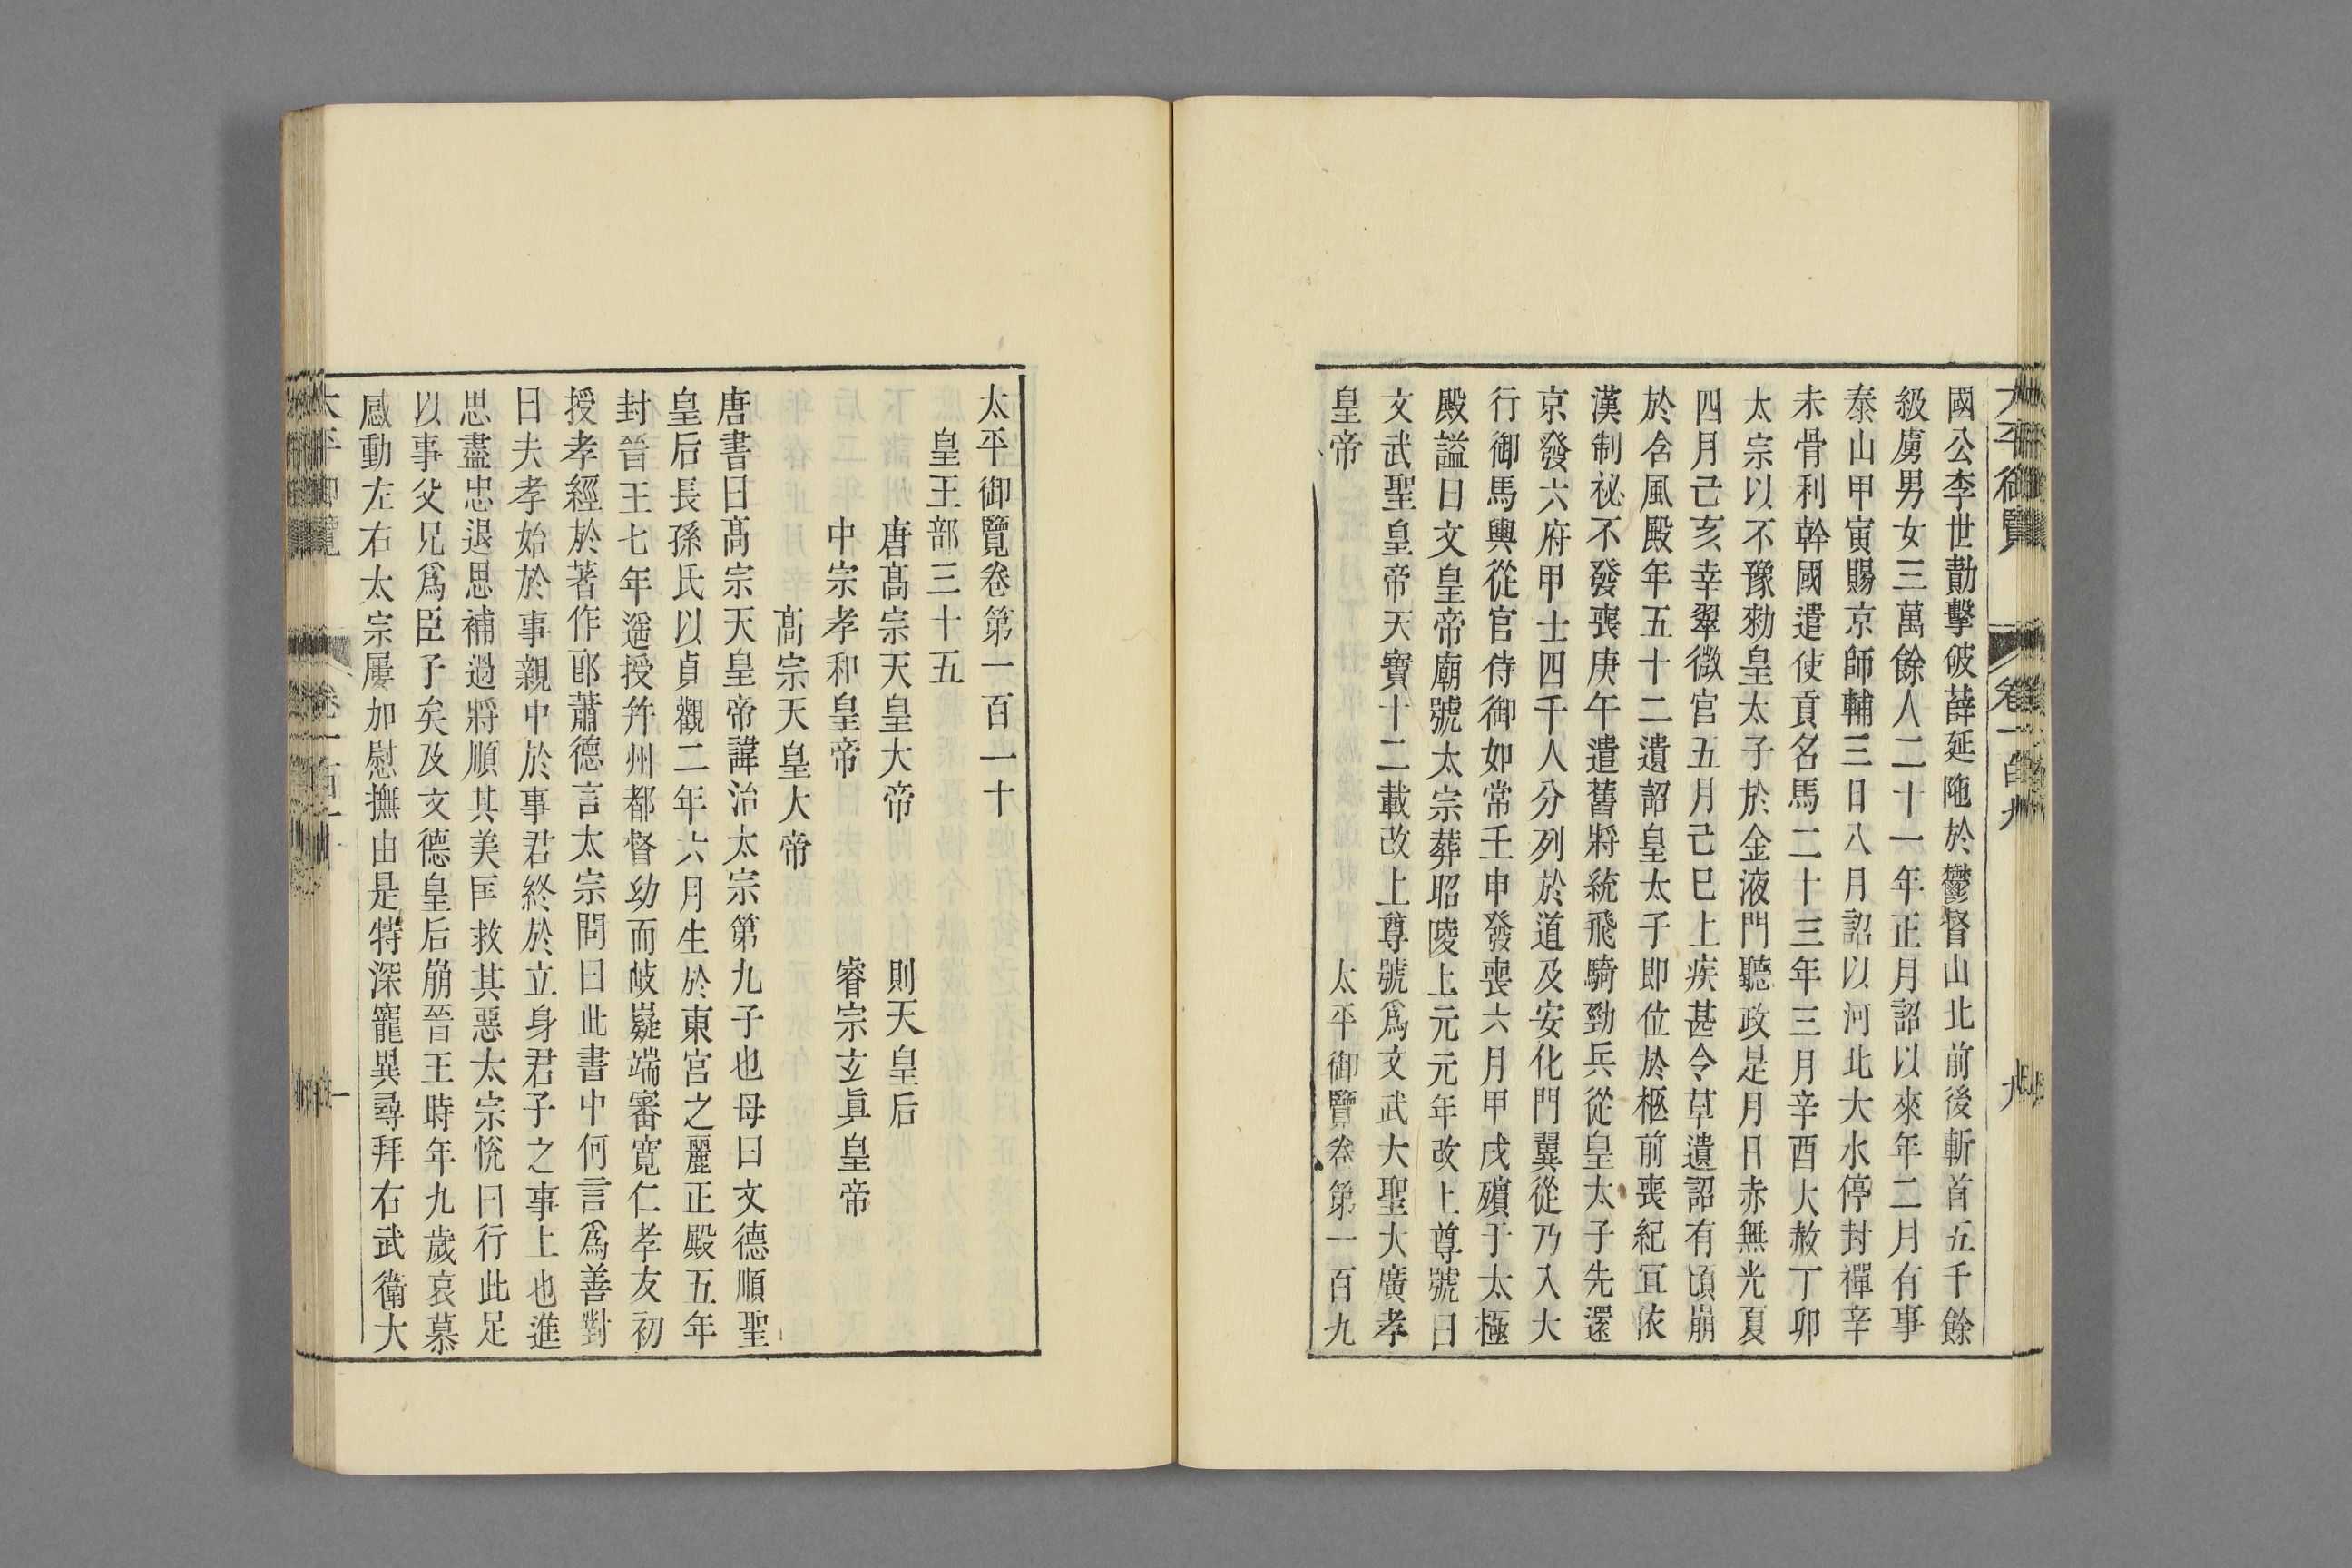 國公李世勣擊破薛延陁於鬱督山北前後斬首五千餘
級虜男女三萬餘人二十一年正月詔以來年二月有事
泰山甲寅賜京師輔三日八月詔以河北大水停封禪辛
未骨利幹國遣使貢名馬二十三年三月辛酉大赦丁卯
太宗以不豫勑皇太子於金液門聽政是月日赤無光夏
四月己亥幸翠微宮五月己巳上疾甚令草遺詔有頃崩
於含風殿年五十二遺詔皇太子即位於柩前喪紀宜依
漢制祕不發喪庚午遣舊將統飛騎勁兵從皇太子先還
京發六府甲士四千人分列於道及安化門翼從乃入大
行御馬輿從官侍御如常壬申發喪六月甲戌殯于太極
殿謚曰文皇帝廟號太宗葬昭陵上元元年改上尊號曰
文武聖皇帝天寶十二載改上尊號爲文武大聖大廣孝
皇帝
太平御覽卷第一百九
太平御覽卷第一百一十
皇王部三十五
唐髙宗天皇大帝 則天皇后
中宗孝和皇帝 睿宗玄眞皇帝
髙宗天皇大帝
唐書曰髙宗天皇帝諱治太宗第九子也母曰文德順聖
皇后長孫氏以貞觀二年六月生於東宮之麗正殿五年
封晉王七年遥授幷州都督幼而岐嶷端審寬仁孝友初
授孝經於著作郎蕭德言太宗問曰此書中何言爲善對
曰夫孝始於事親中於事君終於立身君子之事上也進
思盡忠退思補過將順其美匡救其惡太宗悅曰行此足
以事父兄爲臣子矣及文德皇后崩晉王時年九歲哀慕
感動左右太宗屢加慰撫由是特深寵異尋拜右武衞大